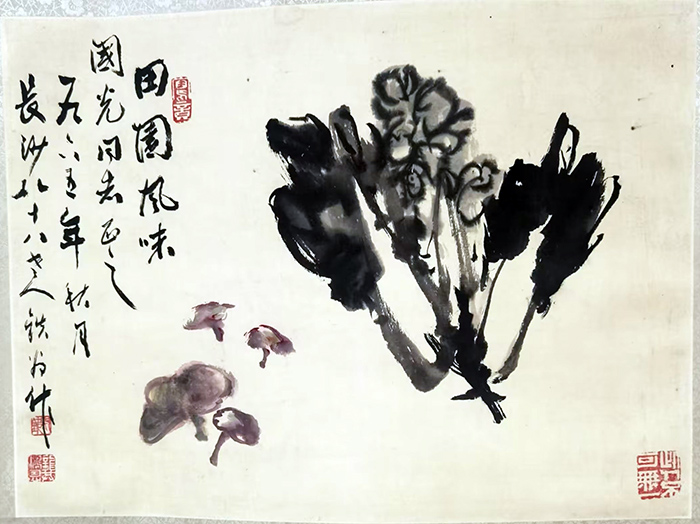 田園風味
國光同志正之
一九六五年秋月
長沙八十八老人鐵翁作